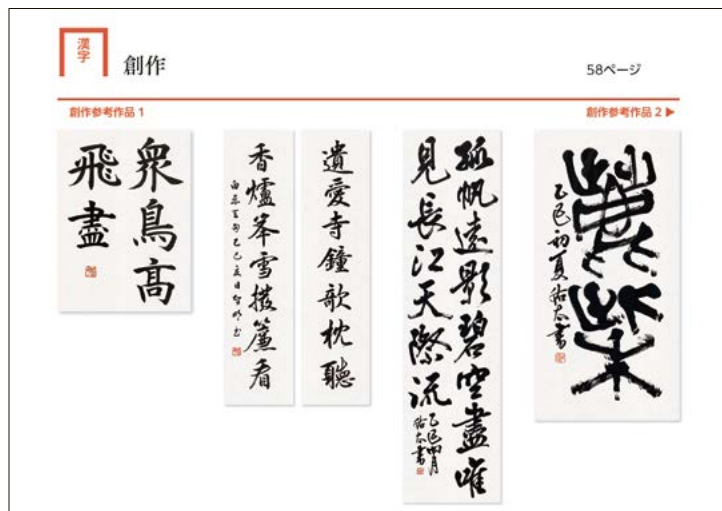 漢字
創作
58ページ
創作参考作品 1
創作参考作品 2 ▶
衆鳥高
飛盡
遺愛寺鐘欹枕聽
香爐峯雪撥簾看
孤帆遠影碧空盡唯
見長江天際流
乙巳四月
乙巳初夏